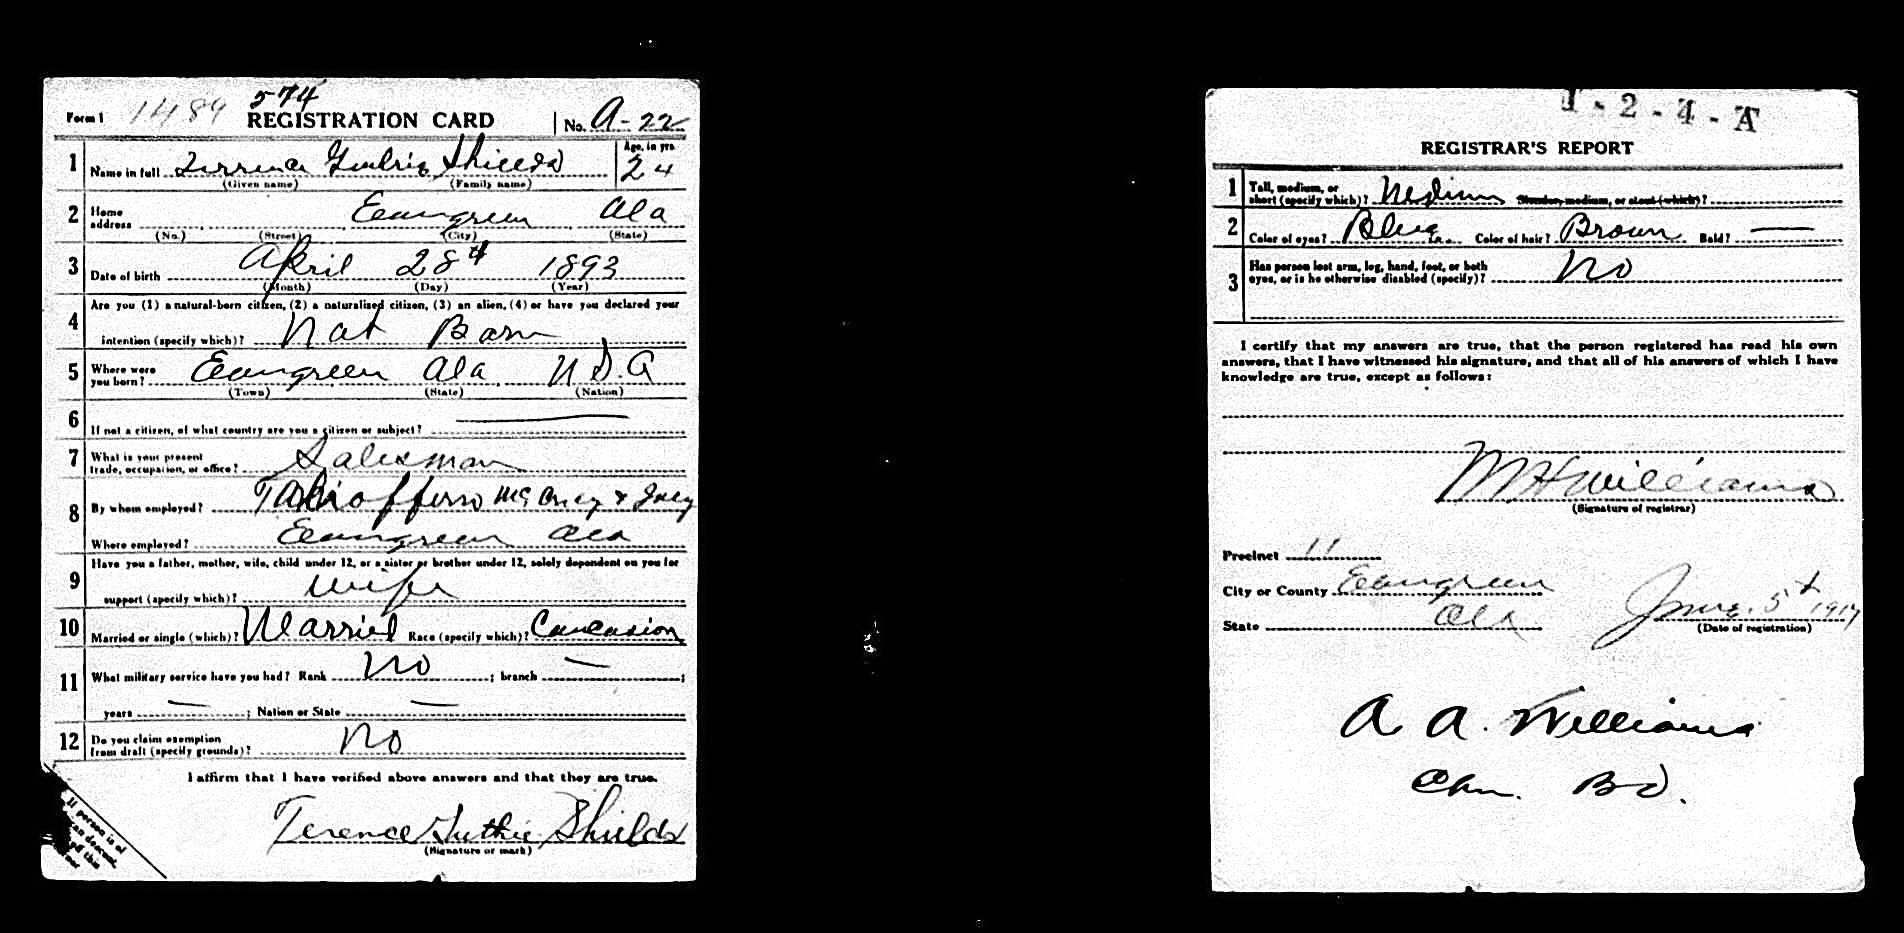 Form 1 1489 574 REGISTRATION CARD No. A-22
1 Name in full Terrence Shields Age, in yrs. 24
(Given name) (Family name)
2 Home address Evergreen Ala
(No.) (Street) (City) (State)
3 Date of birth April 28th 1893
(Month) (Day) (Year)
4 Are you (1) a natural-born citizen, (2) a naturalized citizen, (3) an alien, (4) or have you declared your
intention (specify which)? Nat Born
5 Where were you born? Evergreen Ala U.S.A
(Town) (State) (Nation)
6 If not a citizen, of what country are you a citizen or subject? —
7 What is your present trade, occupation, or office? Salesman
8 By whom employed? Taliafferro McCrery & Ivey
Where employed? Evergreen Ala
9 Have you a father, mother, wife, child under 12, or a sister or brother under 12, solely dependent on you for
support (specify which)? Wife
10 Married or single (which)? Married Race (specify which)? Caucasion
11 What military service have you had? Rank No ; branch — ;
years — ; Nation or State —
12 Do you claim exemption from draft (specify grounds)? No
I affirm that I have verified above answers and that they are true.
Terence Guthrie Shields
(Signature or mark)
If person is of
1-2-4-A
REGISTRAR'S REPORT
1 Tall, medium, or short (specify which)? Medium Slender, medium, or stout (which)?
2 Color of eyes? Blue Color of hair? Brown Bald? —
3 Has person lost arm, leg, hand, foot, or both
eyes, or is he otherwise disabled (specify)? No
I certify that my answers are true, that the person registered has read his own
answers, that I have witnessed his signature, and that all of his answers of which I have
knowledge are true, except as follows:
M H Williams
(Signature of registrar)
Precinct 11
City or County Evergreen
State Ala June 5th 1917
(Date of registration)
A. A. Williams
Chm. Bd.